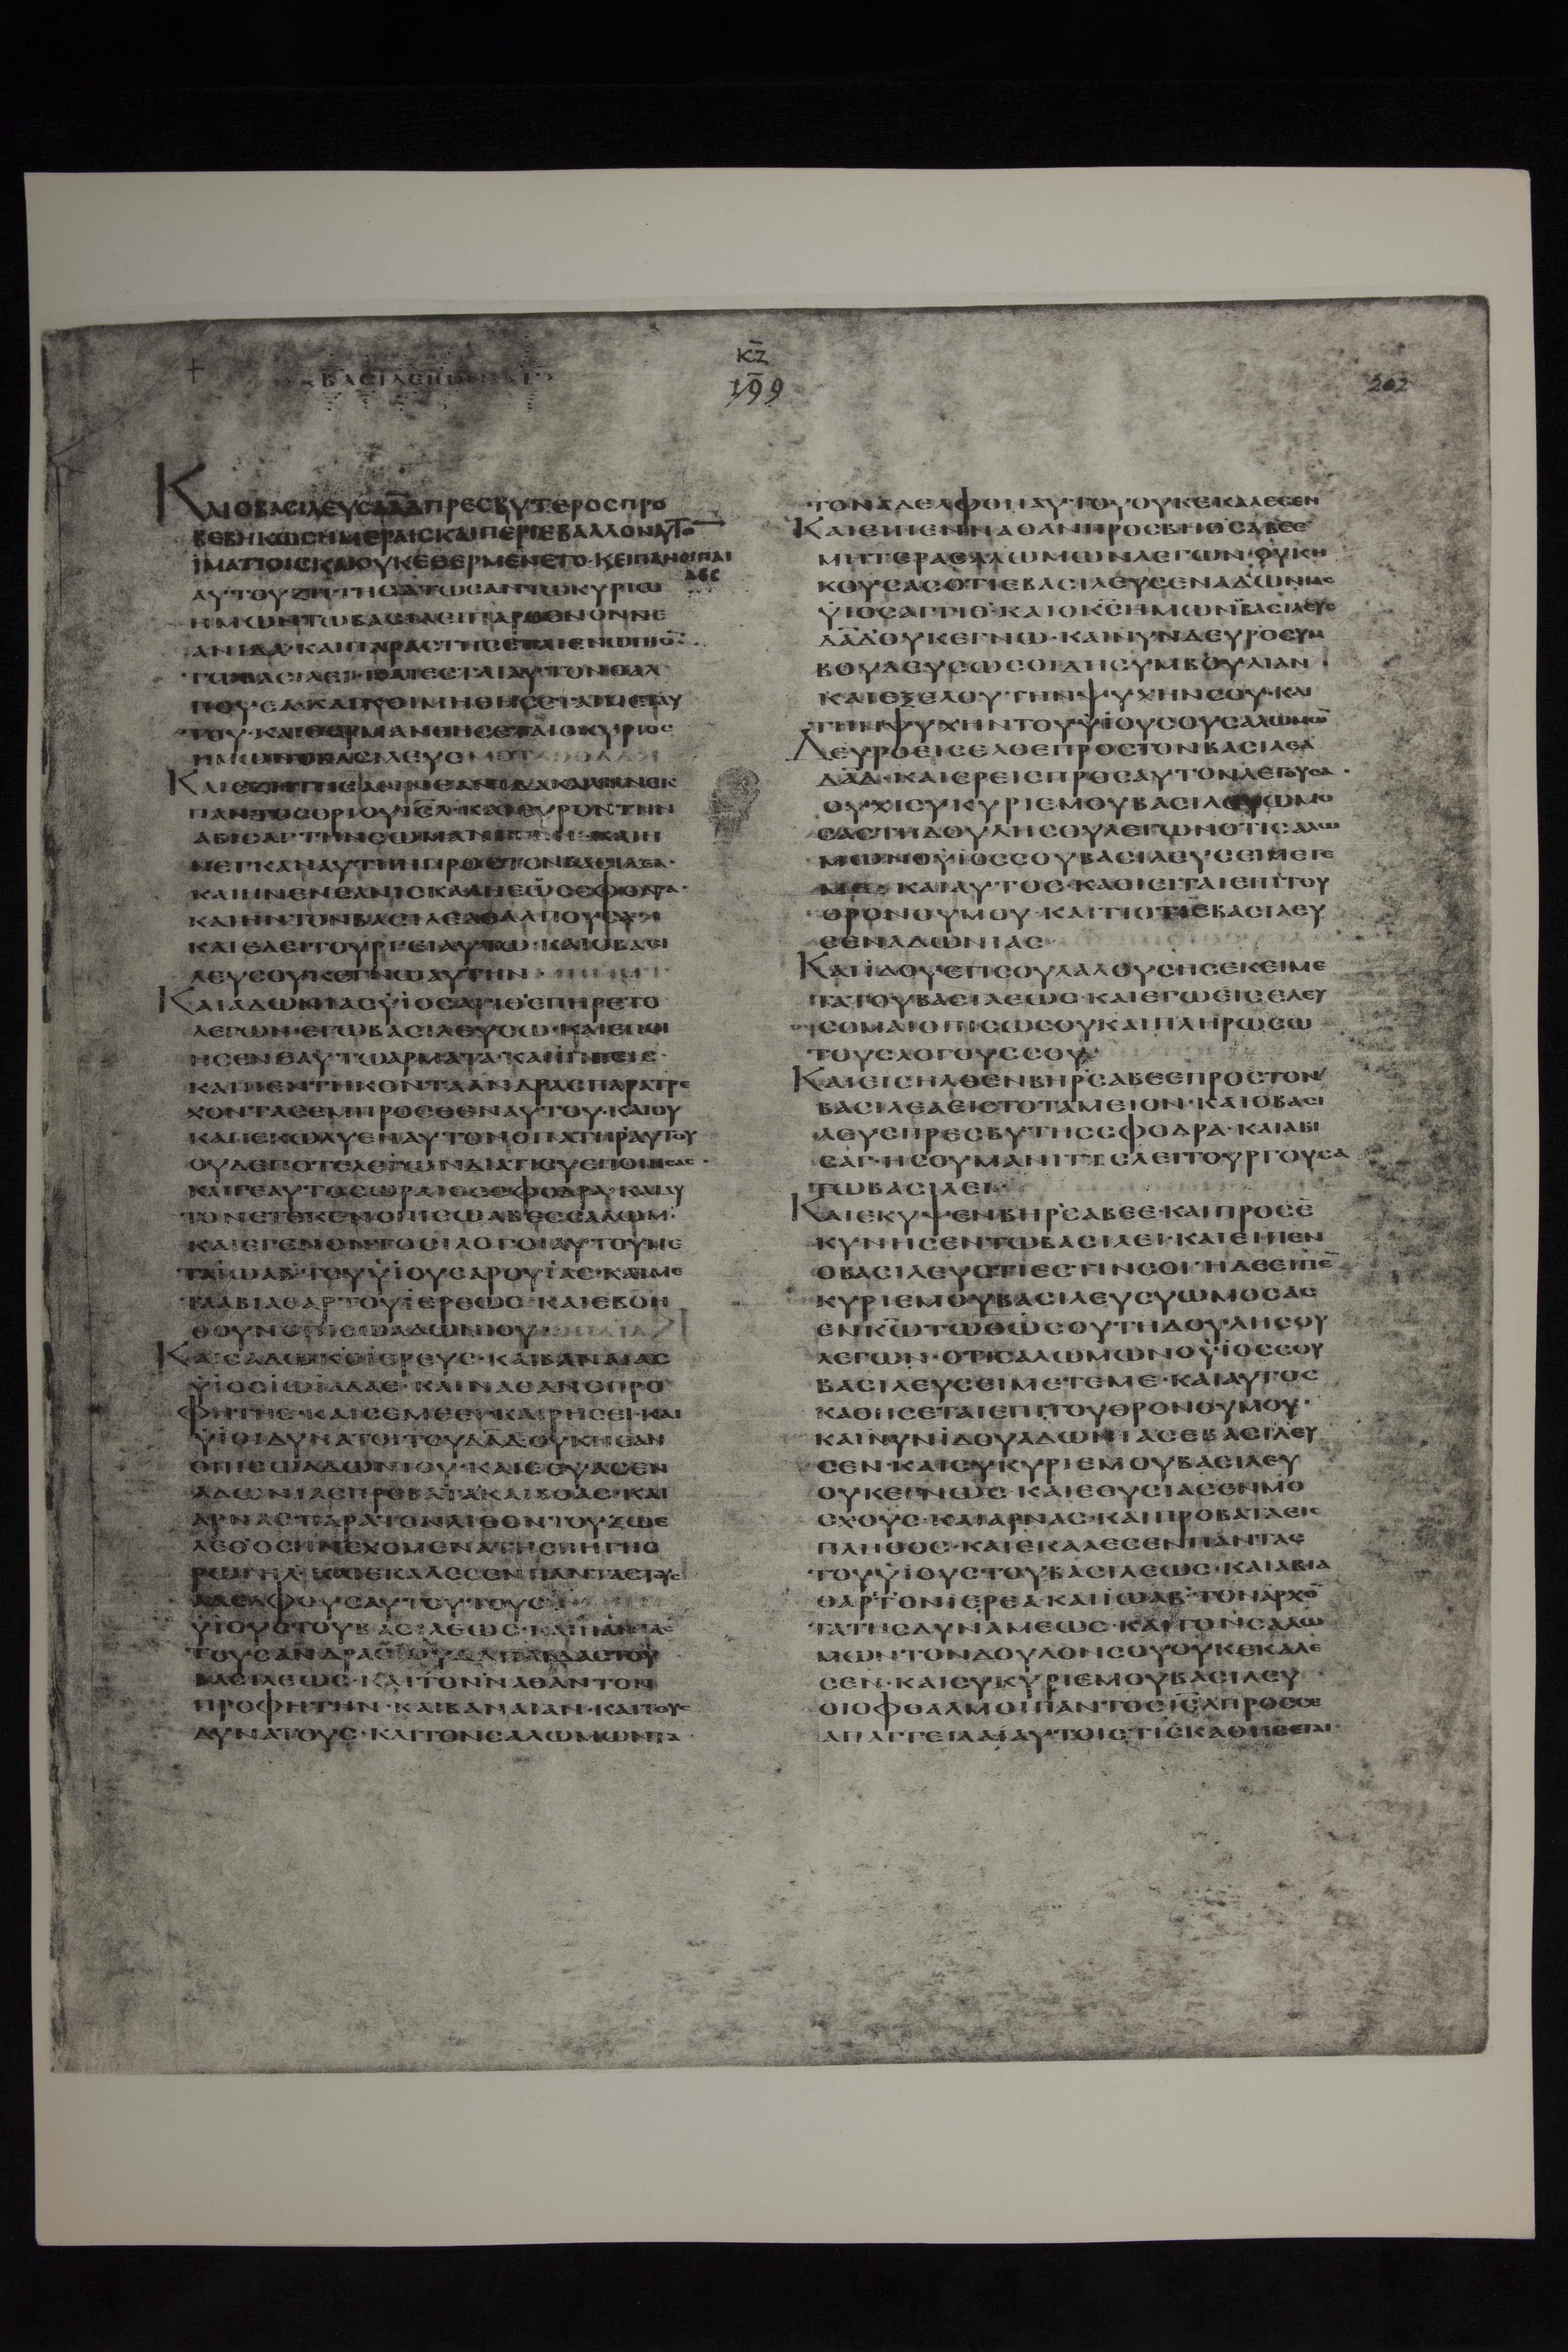 ΒΑΣΙΛΕΙΩΝ
ΚΖ
199
202
ΚΑΙΟΒΑCΙΛΕΥCΔΑΔΠΡΕCΒΥΤΕΡΟCΠΡΟ
ΒΕΒΗΚΩCΗΜΕΡΑΙCΚΑΙΠΕΡΙΕΒΑΛΛΟΝΑΥΤΟ
ΙΜΑΤΙΟΙCΚΑΙΟΥΚΕΘΕΡΜΕΝΕΤΟ·ΚΕΙΠΑΝΟΙΠΑΙ
ΔΕC
ΑΥΤΟΥΖΗΤΗCΑΤΩCΑΝΤΩΚΥΡΙΩ
ΗΜΩΝΤΩΒΑCΙΛΕΙΠΑΡΘΕΝΟΝΝΕ
ΑΝΙΔΑ·ΚΑΙΠΑΡΑCΤΗCΕΤΑΙΕΝΩΠΙΟ
ΤΩΒΑCΙΛΕΙ·ΚΑΙΕCΤΑΙΑΥΤΟΝΘΑΛ
ΠΟΥCΑ·ΚΑΙΚΟΙΜΗΘΗCΕΤΑΙΜΕΤΑΥ
ΤΟΥ·ΚΑΙΘΕΡΜΑΝΘΗCΕΤΑΙΟΚΥΡΙΟC
ΗΜΩΝΟΒΑCΙΛΕΥC
ΚΑΙΕΖΗΤΗCΑΝΝΕΑΝΙΔΑΚΑΛΗΝΕΚ
ΠΑΝΤΟCΟΡΙΟΥΙCΛ·ΚΑΙΕΥΡΟΝΤΗΝ
ΑΒΙCΑΓΤΗΝCΩΜΑΝΙΤΗΝ·ΚΑΙΗ
ΝΕΓΚΑΝΑΥΤΗΝΠΡΟCΤΟΝΒΑCΙΛΕΑ·
ΚΑΙΗΝΕΝΕΑΝΙCΚΑΛΗΕΩCCΦΟΔΡΑ·
ΚΑΙΗΝΤΟΝΒΑCΙΛΕΑΘΑΛΠΟΥCΑ
ΚΑΙΕΛΕΙΤΟΥΡΓΕΙΑΥΤΩ·ΚΑΙΟΒΑCΙ
ΛΕΥCΟΥΚΕΓΝΩΑΥΤΗΝ
ΚΑΙΑΔΩΝΙΑCΥΙΟCΑΓΓΙΘΕΠΗΡΕΤΟ
ΛΕΓΩΝ·ΕΓΩΒΑCΙΛΕΥCΩ·ΚΑΙΕΠΟΙ
ΗCΕΝΕΑΥΤΩΑΡΜΑΤΑ·ΚΑΙΙΠΠΕΙC·
ΚΑΙΠΕΝΤΗΚΟΝΤΑΑΝΔΡΑCΠΑΡΑΤΡΕ
ΧΟΝΤΑCΕΜΠΡΟCΘΕΝΑΥΤΟΥ·ΚΑΙΟΥ
ΚΑΠΕΚΩΛΥΕΝΑΥΤΟΝΟΠΑΤΗΡΑΥΤΟΥ
ΟΥΔΕΠΟΤΕΛΕΓΩΝΔΙΑΤΙCΥΕΠΟΙΗCΑC·
ΚΑΙΓΕΑΥΤΟCΩΡΑΙΟCCΦΟΔΡΑ·ΚΑΙΑΥ
ΤΟΝΕΤΕΚΕΝΟΠΙCΩΑΒΕCCΑΛΩΜ·
ΚΑΙΕΓΕΝΟΝΤΟΟΙΛΟΓΟΙΑΥΤΟΥΜΕ
ΤΑΙΩΑΒ·ΤΟΥΥΙΟΥCΑΡΟΥΙΑC·ΚΑΙΜΕ
ΤΑΑΒΙΑΘΑΡΤΟΥΙΕΡΕΩC·ΚΑΙΕΒΟΗ
ΘΟΥΝΟΠΙCΩΑΔΩΝΙΟΥ
ΚΑΙCΑΔΩΚΟΙΕΡΕΥC·ΚΑΙΒΑΝΑΙΑC
ΥΙΟCΙΩΙΑΔΑΕ·ΚΑΙΝΑΘΑΝΟΠΡΟ
ΦΗΤΗC·ΚΑΙCΕΜΕΕΙ·ΚΑΙΡΗCΕΙ·ΚΑΙ
ΥΙΟΙΔΥΝΑΤΟΙΤΟΥΔΑΔ·ΟΥΚΗCΑΝ
ΟΠΙCΩΑΔΩΝΙΟΥ·ΚΑΙΕΘΥCΑCΕΝ
ΑΔΩΝΙΑCΠΡΟΒΑΤΑΚΑΙΒΟΑC·ΚΑΙ
ΑΡΝΑC·ΠΑΡΑΤΟΝΑΙΘΟΝΤΟΥΖΩΕ
ΛΕΘΟCΗΝΕΧΟΜΕΝΑΤΗCΠΗΓΗC
ΡΩΓΗΛ·ΚΑΙΕΚΑΛΕCΕΝΠΑΝΤΑCΤΟΥC
ΑΔΕΛΦΟΥCΑΥΤΟΥΤΟΥC
ΥΙΟΥCΤΟΥΒΑCΙΛΕΩC·ΚΑΙΠΑΝΤΑC
ΤΟΥCΑΝΔΡΑCΙΟΥΔΑΠΑΙΔΑCΤΟΥ
ΒΑCΙΛΕΩC·ΚΑΙΤΟΝΝΑΘΑΝΤΟΝ
ΠΡΟΦΗΤΗΝ·ΚΑΙΒΑΝΑΙΑΝ·ΚΑΙΤΟΥC
ΔΥΝΑΤΟΥC·ΚΑΙΤΟΝCΑΛΩΜΩΝΤΑ
ΤΟΝΑΔΕΛΦΟΝΑΥΤΟΥΟΥΚΕΚΑΛΕCΕΝ
ΚΑΙΕΙΠΕΝΝΑΘΑΝΠΡΟCΒΗΘCΑΒΕΕ
ΜΗΤΕΡΑCΑΛΩΜΩΝΛΕΓΩΝ·ΟΥΚΗ
ΚΟΥCΑCΟΤΙΕΒΑCΙΛΕΥCΕΝΑΔΩΝΙΑC
ΥΙΟCΑΓΓΙΘ·ΚΑΙΟΚCΗΜΩΝΒΑCΙΛΕΥC
ΔΑΔΟΥΚΕΓΝΩ·ΚΑΙΝΥΝΔΕΥΡΟCΥΜ
ΒΟΥΛΕΥCΩCΟΙΔΗCΥΜΒΟΥΛΙΑΝ
ΚΑΙΕΞΕΛΟΥΤΗΝΨΥΧΗΝCΟΥ·ΚΑΙ
ΤΗΝΨΥΧΗΝΤΟΥΥΙΟΥCΟΥCΑΛΩΜΩ
ΔΕΥΡΟΕΙCΕΛΘΕΠΡΟCΤΟΝΒΑCΙΛΕΑ
ΔΑΔ·ΚΑΙΕΡΕΙCΠΡΟCΑΥΤΟΝΛΕΓΟΥCΑ·
ΟΥΧΙCΥΚΥΡΙΕΜΟΥΒΑCΙΛΕΥΩΜΟ
CΑCΤΗΔΟΥΛΗCΟΥΛΕΓΩΝΟΤΙCΑΛΩ
ΜΩΝΟΥΙΟCCΟΥΒΑCΙΛΕΥCΕΙΜΕΤΕ
ΜΕ·ΚΑΙΑΥΤΟC·ΚΑΘΙΕΙΤΑΙΕΠΙΤΟΥ
ΘΡΟΝΟΥΜΟΥ·ΚΑΙΤΙΟΤΙΕΒΑCΙΛΕΥ
CΕΝΑΔΩΝΙΑC
ΚΑΙΙΔΟΥΕΤΙCΟΥΛΑΛΟΥCΗCΕΚΕΙΜΕ
ΤΑΤΟΥΒΑCΙΛΕΩC·ΚΑΙΕΓΩΕΙCΕΛΕΥ
CΟΜΑΙΟΠΙCΩCΟΥΚΑΙΠΛΗΡΩCΩ
ΤΟΥCΛΟΓΟΥCCΟΥ·
ΚΑΙΕΙCΗΛΘΕΝΒΗΡCΑΒΕΕΠΡΟCΤΟΝ
ΒΑCΙΛΕΑΕΙCΤΟΤΑΜΕΙΟΝ·ΚΑΙΟΒΑCΙ
ΛΕΥCΠΡΕCΒΥΤΗCCΦΟΔΡΑ·ΚΑΙΑΒΙ
CΑΓ·ΗCΟΥΜΑΝΙΤΙCΛΕΙΤΟΥΡΓΟΥCΑ
ΤΩΒΑCΙΛΕΙ·
ΚΑΙΕΚΥΨΕΝΒΗΡCΑΒΕΕ·ΚΑΙΠΡΟCΕ
ΚΥΝΗCΕΝΤΩΒΑCΙΛΕΙ·ΚΑΙΕΙΠΕΝ
ΟΒΑCΙΛΕΥCΤΙΕCΤΙΝCΟΙ·ΗΔΕΕΙΠΕ
ΚΥΡΙΕΜΟΥΒΑCΙΛΕΥCΥΩΜΟCΑC
ΕΝΚΩΤΩΘΩCΟΥΤΗΔΟΥΛΗCΟΥ
ΛΕΓΩΝ·ΟΤΙCΑΛΩΜΩΝΟΥΙΟCCΟΥ
ΒΑCΙΛΕΥCΕΙΜΕΤΕΜΕ·ΚΑΙΑΥΤΟC
ΚΑΘΗCΕΤΑΙΕΠΙΤΟΥΘΡΟΝΟΥΜΟΥ·
ΚΑΙΝΥΝΙΔΟΥΑΔΩΝΙΑCΕΒΑCΙΛΕΥ
CΕΝ·ΚΑΙCΥΚΥΡΙΕΜΟΥΒΑCΙΛΕΥ
ΟΥΚΕΓΝΩC·ΚΑΙΕΘΥCΙΑCΕΝΜΟ
CΧΟΥC·ΚΑΙΑΡΝΑC·ΚΑΙΠΡΟΒΑΤΑΕΙC
ΠΛΗΘΟC·ΚΑΙΕΚΑΛΕCΕΝΠΑΝΤΑC
ΤΟΥΥΙΟΥCΤΟΥΒΑCΙΛΕΩC·ΚΑΙΑΒΙΑ
ΘΑΡΤΟΝΙΕΡΕΑ·ΚΑΙΙΩΑΒ·ΤΟΝΑΡΧΟ
ΤΑΤΗCΔΥΝΑΜΕΩC·ΚΑΙΤΟΝCΑΛΩ
ΜΩΝΤΟΝΔΟΥΛΟΝCΟΥΟΥΚΕΚΑΛΕ
CΕΝ·ΚΑΙCΥΚΥΡΙΕΜΟΥΒΑCΙΛΕΥ
ΟΙΟΦΘΑΛΜΟΙΠΑΝΤΟCΙCΛΠΡΟCCΕ
ΑΠΑΓΓΕΙΛΑΙΑΥΤΟΙCΤΙCΚΑΘΗCΕΤΑΙ·